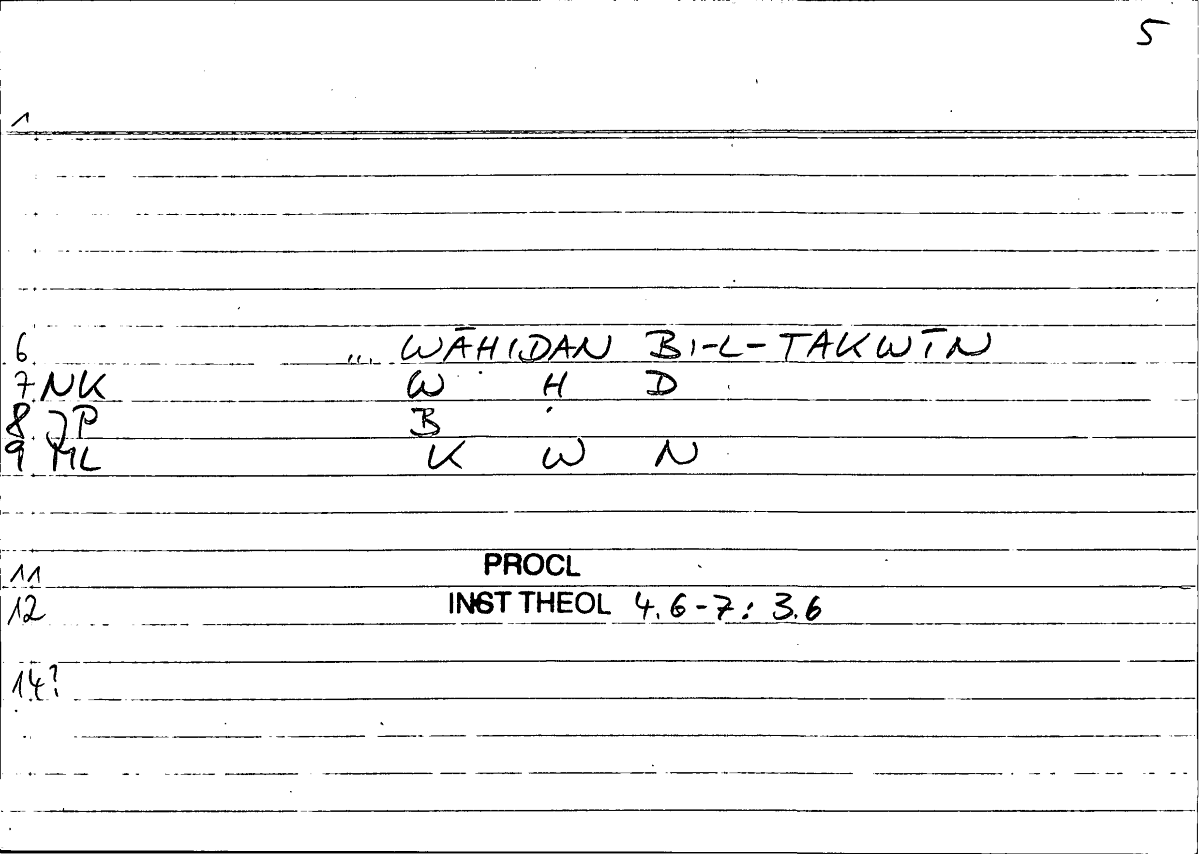 5
1
6 ... WĀHIDAN BI-L-TAKWĪN
7 NK W H D
8 JP B
9 ML K W N
11 PROCL
12 INST THEOL 4.6-7: 3.6
14?